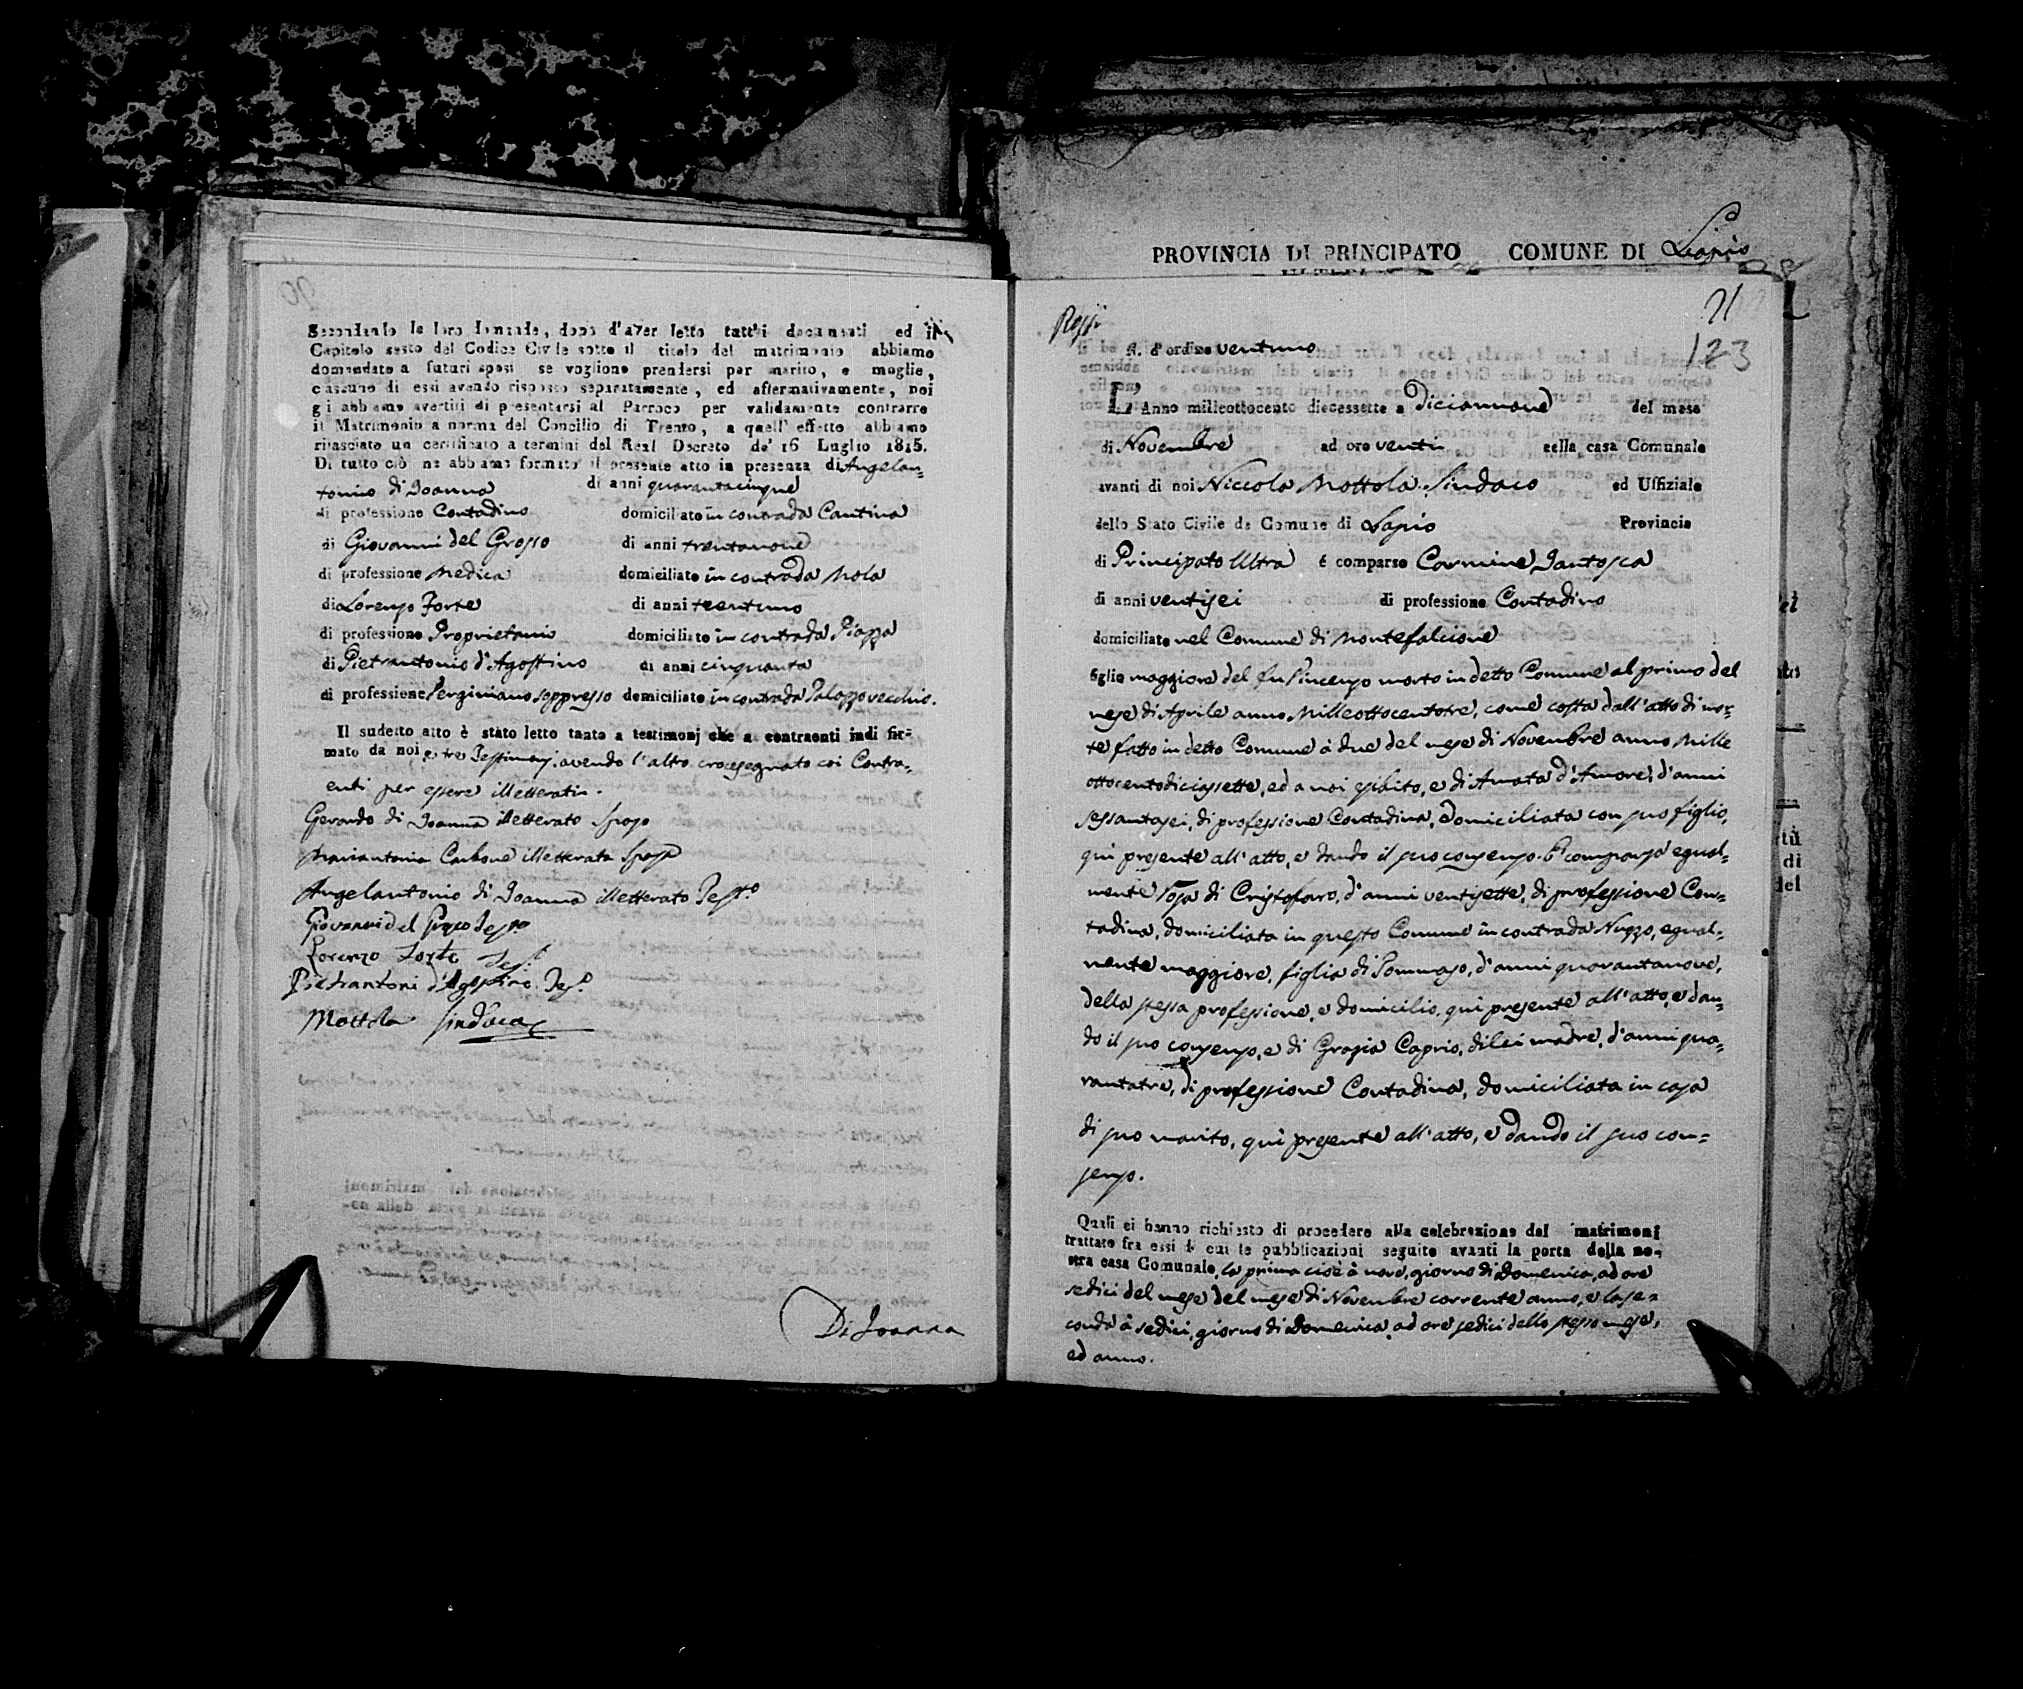 Secondando le loro domande, dopo d'aver letto tutt'i documenti ed il
Capitolo sesto del Codice Civile sotto il titolo del matrimonio abbiamo
domandato a futuri sposi se vogliono prendersi per marito, e moglie,
ciascuno di essi avendo risposto separatamente, ed affermativamente, noi
gli abbiamo avertiti di presentarsi al Parroco per validamente contrarre
il Matrimonio a norma del Concilio di Trento, a quell' effetto abbiamo
rilasciato un certificato a termini del Real Decreto de' 16 Luglio 1815.
Di tutto ciò ne abbiamo formato il presente atto in presenza di Angelan-
tonio di Joanna di anni quarantacinque
di professione Contadino domiciliato in contrada Cantina
di Giovanni del Grosso di anni trentanove
di professione Medico domiciliato in contrada Nola
di Lorenzo Forte di anni trentuno
di professione Proprietario domiciliato in contrada Piazza
di Pietrantonio d'Agostino di anni cinquanta
di professione Verginiano soppresso domiciliato in contrada Palazzovecchio.
Il sudetto atto è stato letto tanto a testimonj che a contraenti indi fir-
mato da noi, e tre Testimonj, avendo l'altro crocesegnato coi Contra-
enti per essere illetterati.
Gerardo di Joanna illetterato Sposo
Mariantonia Carbone illetterata Sposa
Angelantonio di Joanna illetterato Testo.
Giovanni del Grosso Testo
Lorenzo Forte Test.
Pietrantoni d'Agostino Test.
Mottola Sindaco
Di Joanna
PROVINCIA DI PRINCIPATO COMUNE DI Lapio
21
123
N. d'ordine ventuno
L' Anno milleottocento diecessette a diciannove del mese
di Novembre ad ore venti nella casa Comunale
avanti di noi Niccola Mottola Sindaco ed Uffiziale
dello Stato Civile de Comune di Lapio Provincia
di Principato Ultra é comparso Carmine Jantosca
di anni ventisei di professione Contadino
domiciliato nel Comune di Montefalcione
figlio maggiore del fu Vincenzo morto in detto Comune al primo del
mese di Aprile anno Milleottocentotre, come costa dall'atto di mor-
te fatto in detto Comune à due del mese di Novembre anno Mille
ottocentodiciassette, ed a noi esibito, e di Amata d'Amore, d'anni
sessantasei, di professione Contadina, domiciliata con suo figlio,
qui presente all'atto, e dando il suo consenso. È comparsa egual-
mente Rosa di Cristofaro, d'anni ventisette, di professione Con-
tadina, domiciliata in questo Comune in contrada Nuzzo, egual-
mente maggiore, figlia di Tommaso, d'anni quarantanove,
della stessa professione, e domicilio, qui presente all'atto, e dan-
do il suo consenso, e di Grazia Caprio, di lei madre, d'anni qua-
rantatre, di professione Contadina, domiciliata in casa
di suo marito, qui presente all'atto, e dando il suo con-
senso.
Quali ci hanno richiesto di procedere alla celebrazione del matrimoni
trattato fra essi di cui le pubblicazioni seguite avanti la porta della no-
stra casa Comunale, la prima cioè à nove, giorno di Domenica, ad ore
sedici del mese del mese di Novembre corrente anno, e la se-
conda à sedici, giorno di Domenica, ad ore sedici dello stesso mese,
ed anno.